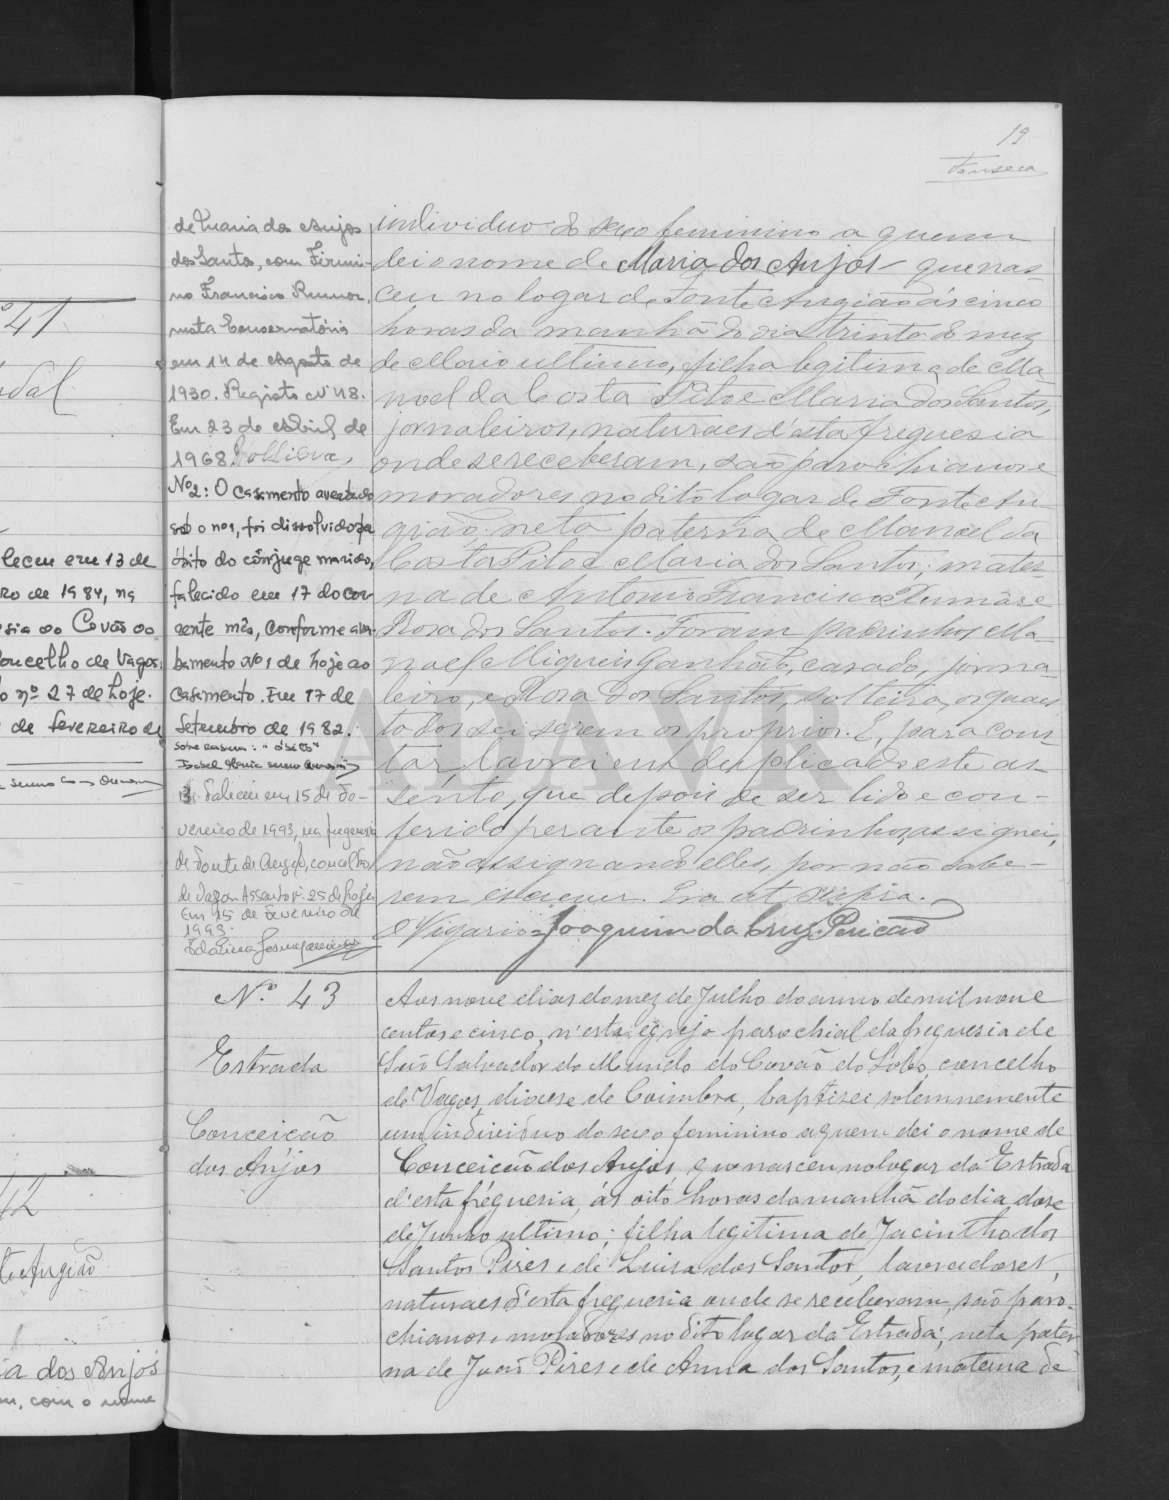 19
Fonseca
º 41
dal
leceu em 13 de
ro de 1984, na
sia do Covão do
oncelho de Vagos.
o nº 27 de hoje.
de fevereiro de
42
te Angião
ia dos Anjos
com o nome
de Maria dos Anjos
dos Santos, com Firmi-
no Francisco Rumor,
nesta Conservatória
em 14 de Agosto de
1930. Registo nº 48.
Em 23 de Abril de
1968.
Nº2: O casamento averbado
sob o nº1, foi dissolvido por
óbito do cônjuge marido,
falecido em 17 do cor
rente mês, conforme aver-
bamento nº1 de hoje ao
casamento. Em 17 de
Setembro de 1982.
sobre rasura: "óbito"
3. Faleceu em 15 de Fe-
vereiro de 1993, na freguesia
de Fonte de Angeão, concelho
de Vagos Assento nº 25 de hoje
Em 15 de Fevereiro de
1993.
individuo do sexo feminino a quem
dei o nome de Maria dos Anjos que nas-
ceu no logar de Fonte Angião ás cinco
horas da manhã do dia trinta do mez
de Maio ultimo, filha legitima de Ma-
noel da Costa Pito e Maria dos Santos,
jornaleiros, naturaes d'esta freguesia
onde se receberam, são parochianos e
moradores no dito logar de Fonte An-
gião neta paterna de Manoel da
Costa Pito e Maria dos Santos; mater-
na de Antonio Francisco e
Rosa dos Santos. Foram padrinhos Ma-
noel Migueis Ganhão, casado, jorna-
leiro, e Rosa dos Santos, solteira, os quaes
todos sei serem os proprios. E, para cons-
tar lavrei em duplicado este as-
sento, que depois de ser lido e con-
ferido perante os padrinhos, assignei,
não assignando elles, por não sabe-
rem escrever. Era ut supra.
O Vigario = Joaquim da Cruz Pericão
ADAVR
N.º 43
Estrada
Conceicão
dos Anjos
Aos nove dias do mez de Julho do anno de mil nove
centos e cinco, n'esta egreja parochial da freguesia de
São Salvador do Mundo do Covão do Lobo, concelho
de Vagos, diocese de Coimbra, baptisei solemnemente
um individuo do sexo feminino a quem dei o nome de
Conceicão dos Anjos, que nasceu no logar da Estrada
d'esta freguesia, ás oito horas da manhã do dia dose
de Junho ultimo; filha legitima de Jacintho dos
Santos Pires e de Luisa dos Santos, lavradores,
naturaes d'esta freguesia onde se receberam, são paro-
chianos e moradores no dito lugar da Estrada; neta pater
na de João Pires e de Anna dos Santos, e materna de